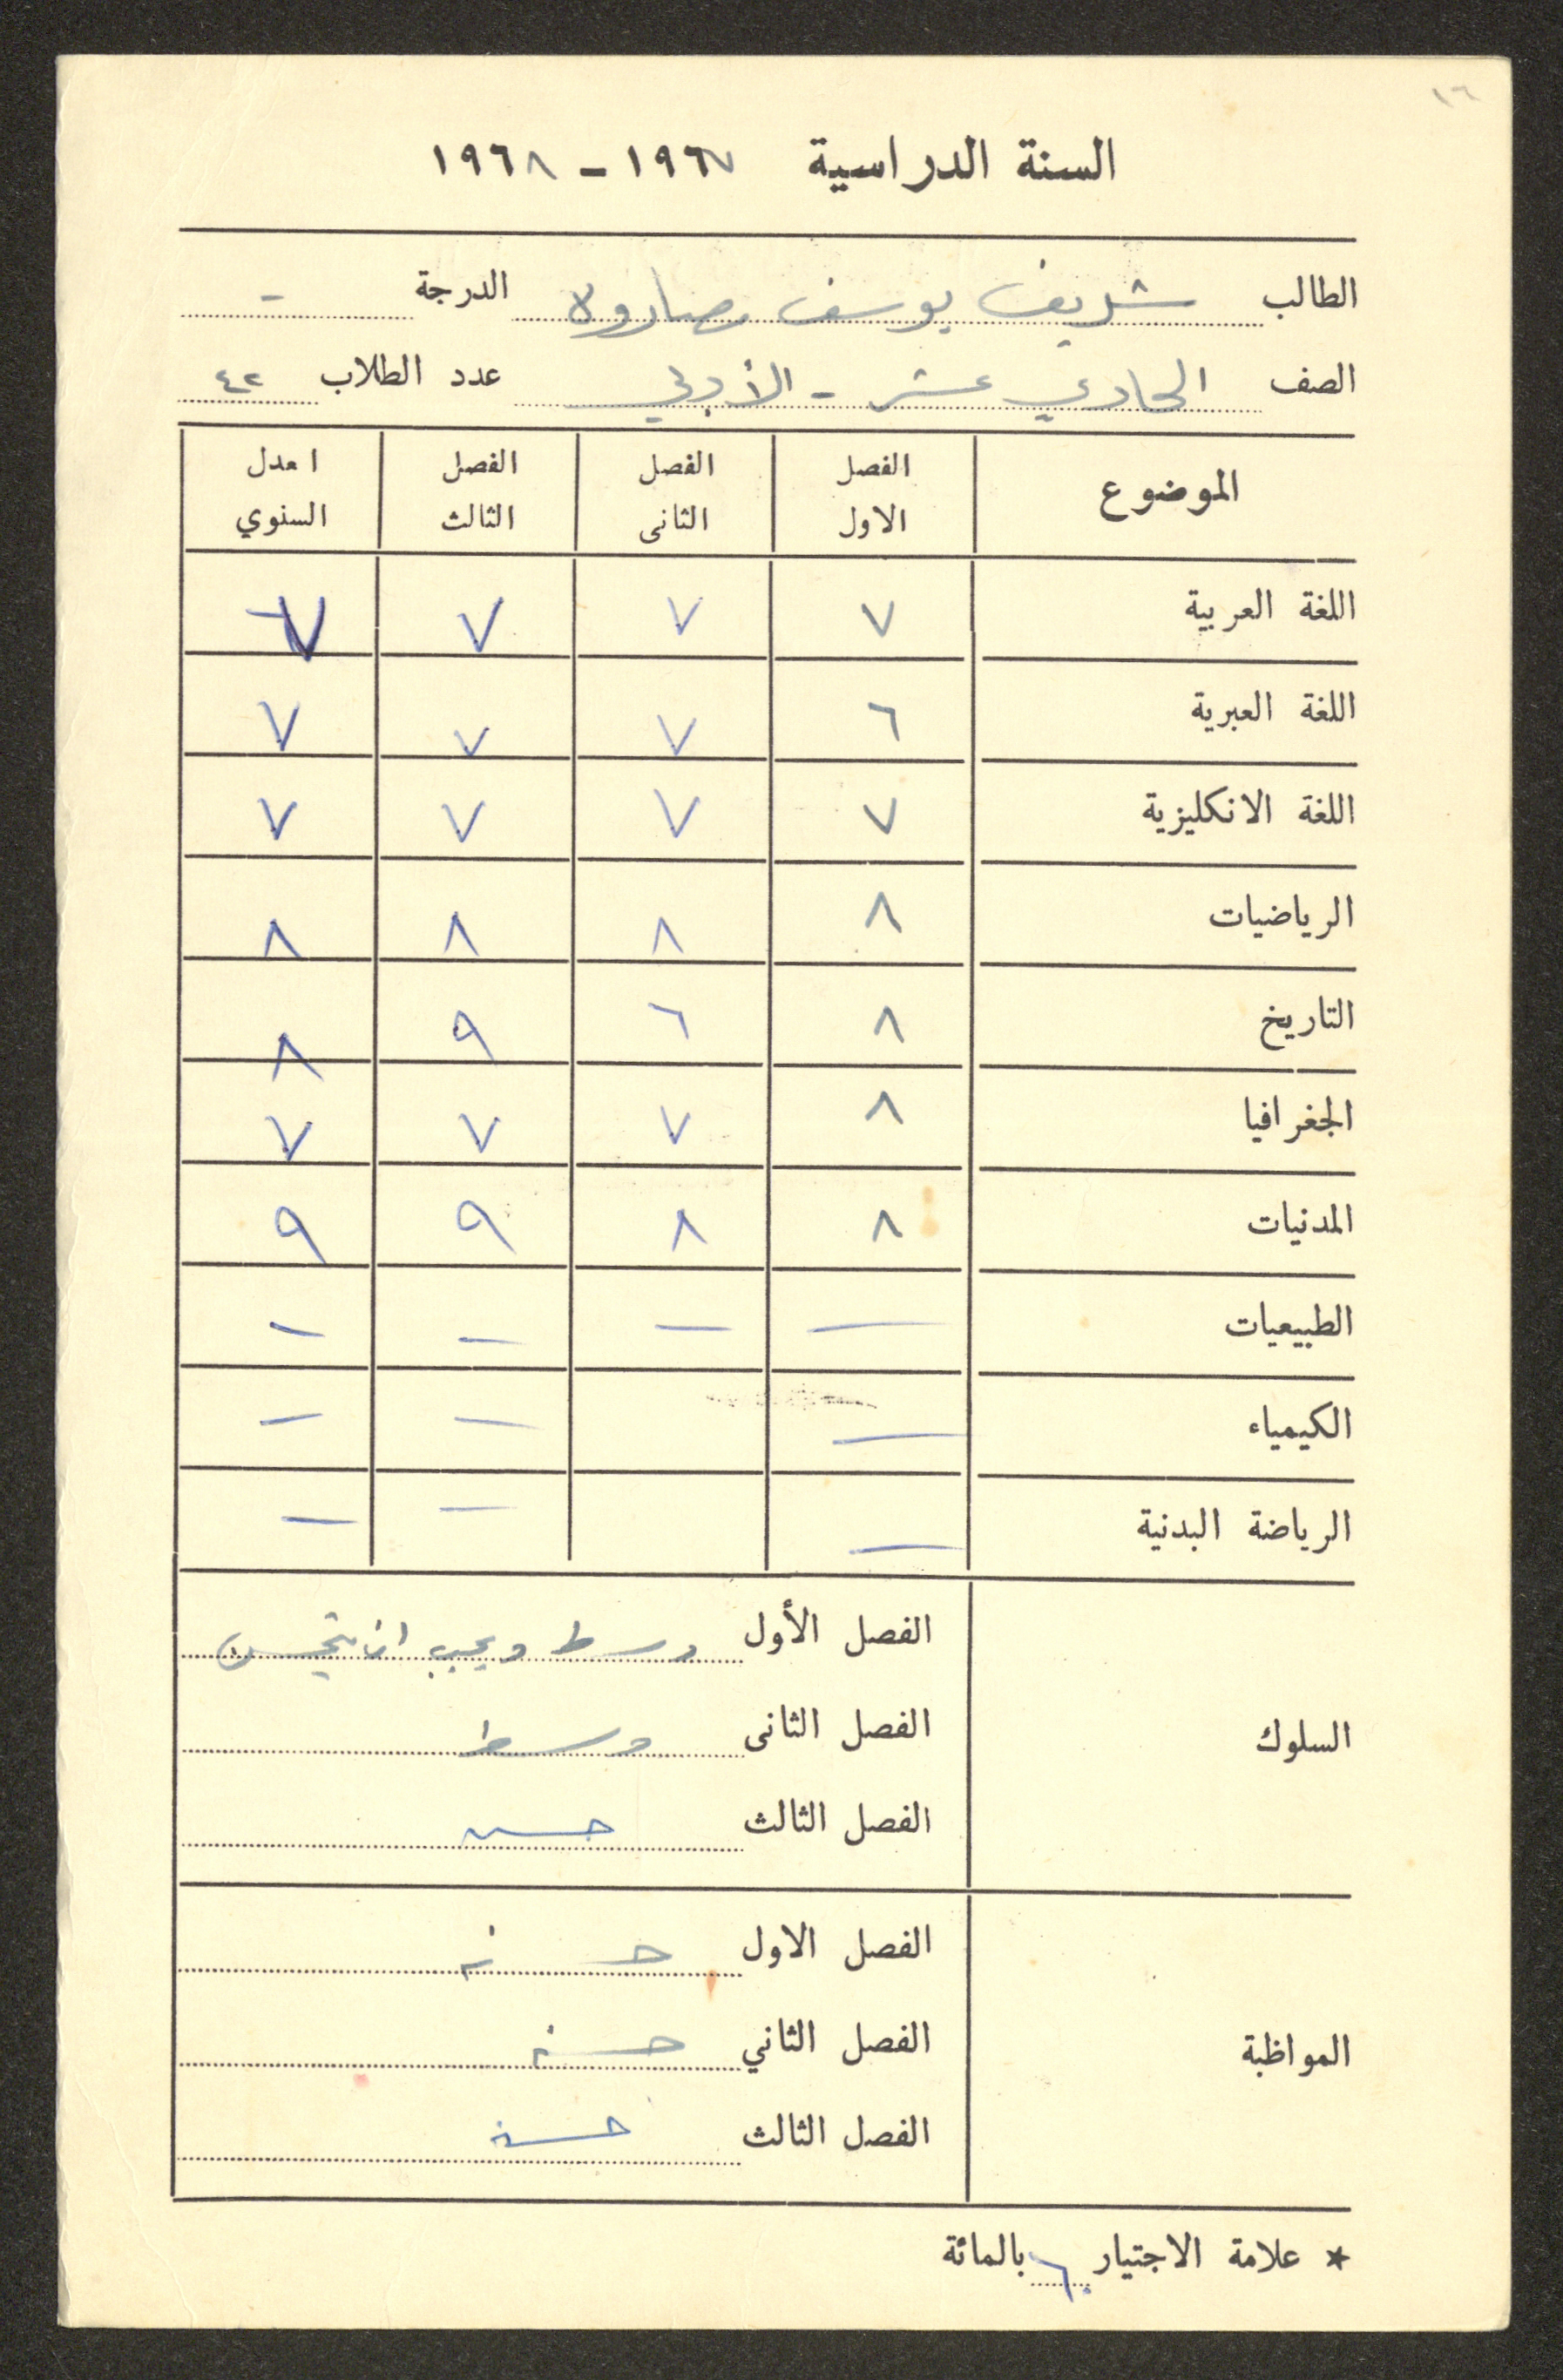 ١٦
السنة الدراسية ١٩٦٧ - ١٩٦٨
الطالب شريف يوسف مصاروه الدرجة -
الصف الحادي عشر - الأدبي عدد الطلاب ٤٢
الموضوع الفصل الاول الفصل الثانى الفصل الثالث ا معدل السنوي
اللغة العربية ٧ ٧ ٧ ٧
اللغة العبرية ٦ ٧ ٧ ٧
اللغة الانكليزية ٧ ٧ ٧ ٧
الرياضيات ٨ ٨ ٨ ٨
التاريخ ٨ ٦ ٩ ٨
الجغرافيا ٨ ٧ ٧ ٧
المدنيات ٨ ٨ ٩ ٩
الطبيعيات - - - -
الكيمياء - - -
الرياضة البدنية - - -
السلوك
الفصل الأول وسط ويجب ان يتحسن
الفصل الثانى وسط
الفصل الثالث حسن
المواظبة
الفصل الاول حسنه
الفصل الثاني حسنه
الفصل الثالث حسنه
* علامة الاجتيار ٦٠ بالمائة